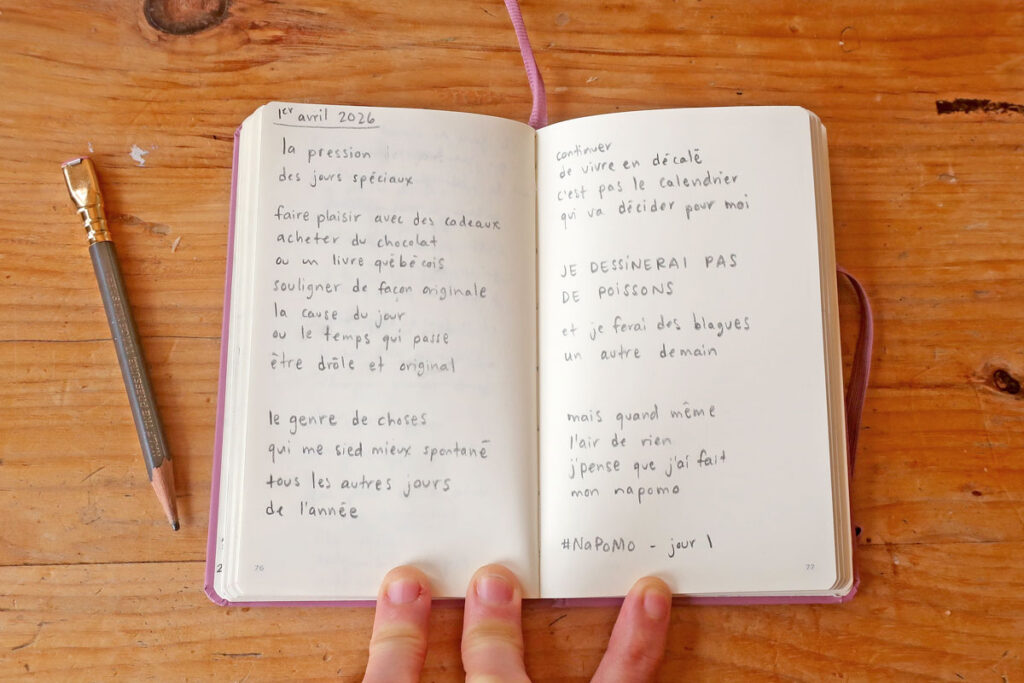 1er avril 2026
la pression
des jours spéciaux
faire plaisir avec des cadeaux
acheter du chocolat
ou un livre québécois
souligner de façon originale
la cause du jour
ou le temps qui passe
être drôle et original
le genre de choses
qui me sied mieux spontané
tous les autres jours
de l'année
76
continuer
de vivre en décalé
c'est pas le calendrier
qui va décider pour moi
JE DESSINERAI PAS
DE POISSONS
et je ferai des blagues
un autre demain
mais quand même
l'air de rien
j'pense que j'ai fait
mon napomo
#NaPoMo - jour 1
77